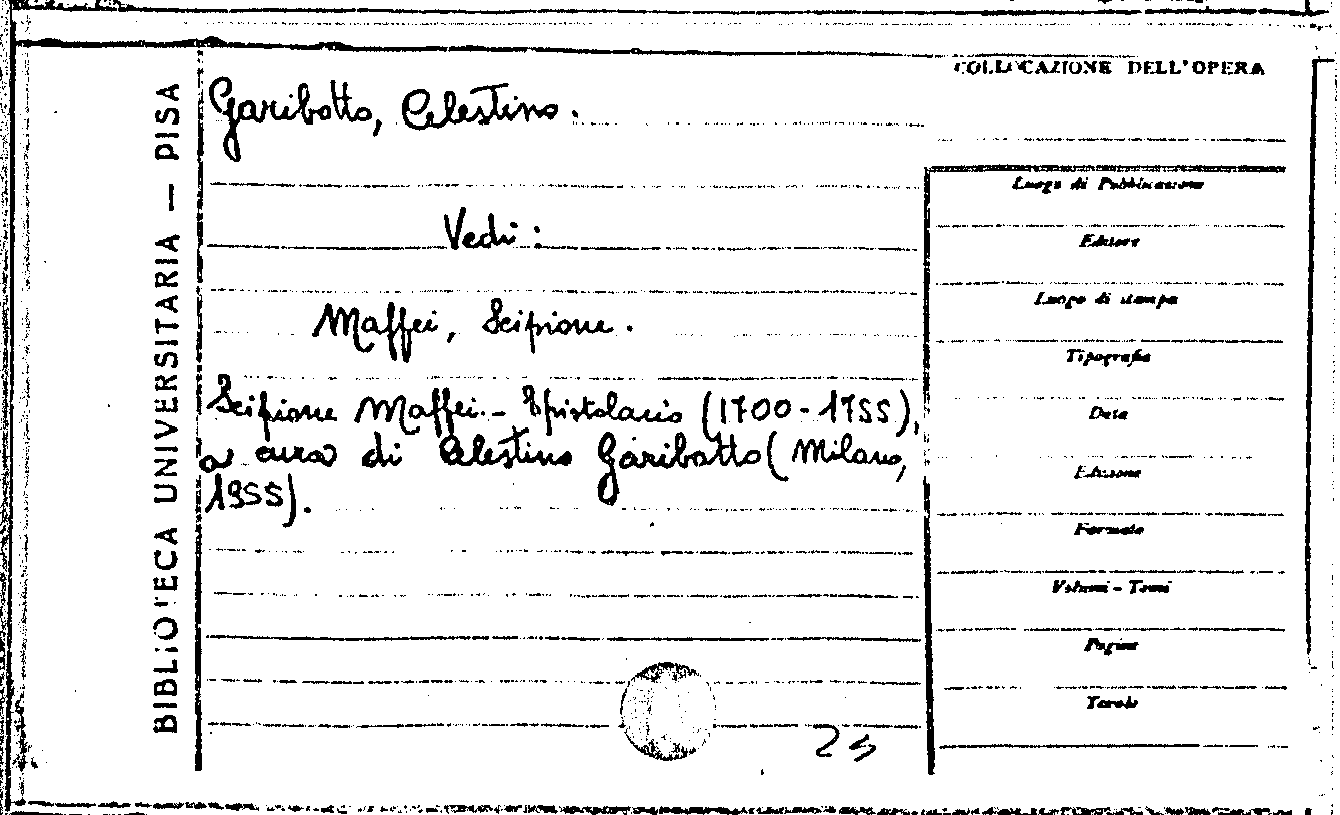 BIBLIOTECA UNIVERSITARIA — PISA
Garibotto, Celestino.
Vedi:
Maffei, Scipione.
Scipione Maffei.- Epistolario (1700-1755),
a cura di Celestino Garibotto (Milano,
1955).
COLLOCAZIONE DELL'OPERA
Luogo di Pubblicazione
Editore
Luogo di stampa
Tipografia
Data
Edizione
Formato
Volumi - Tomi
Pagine
Tavole